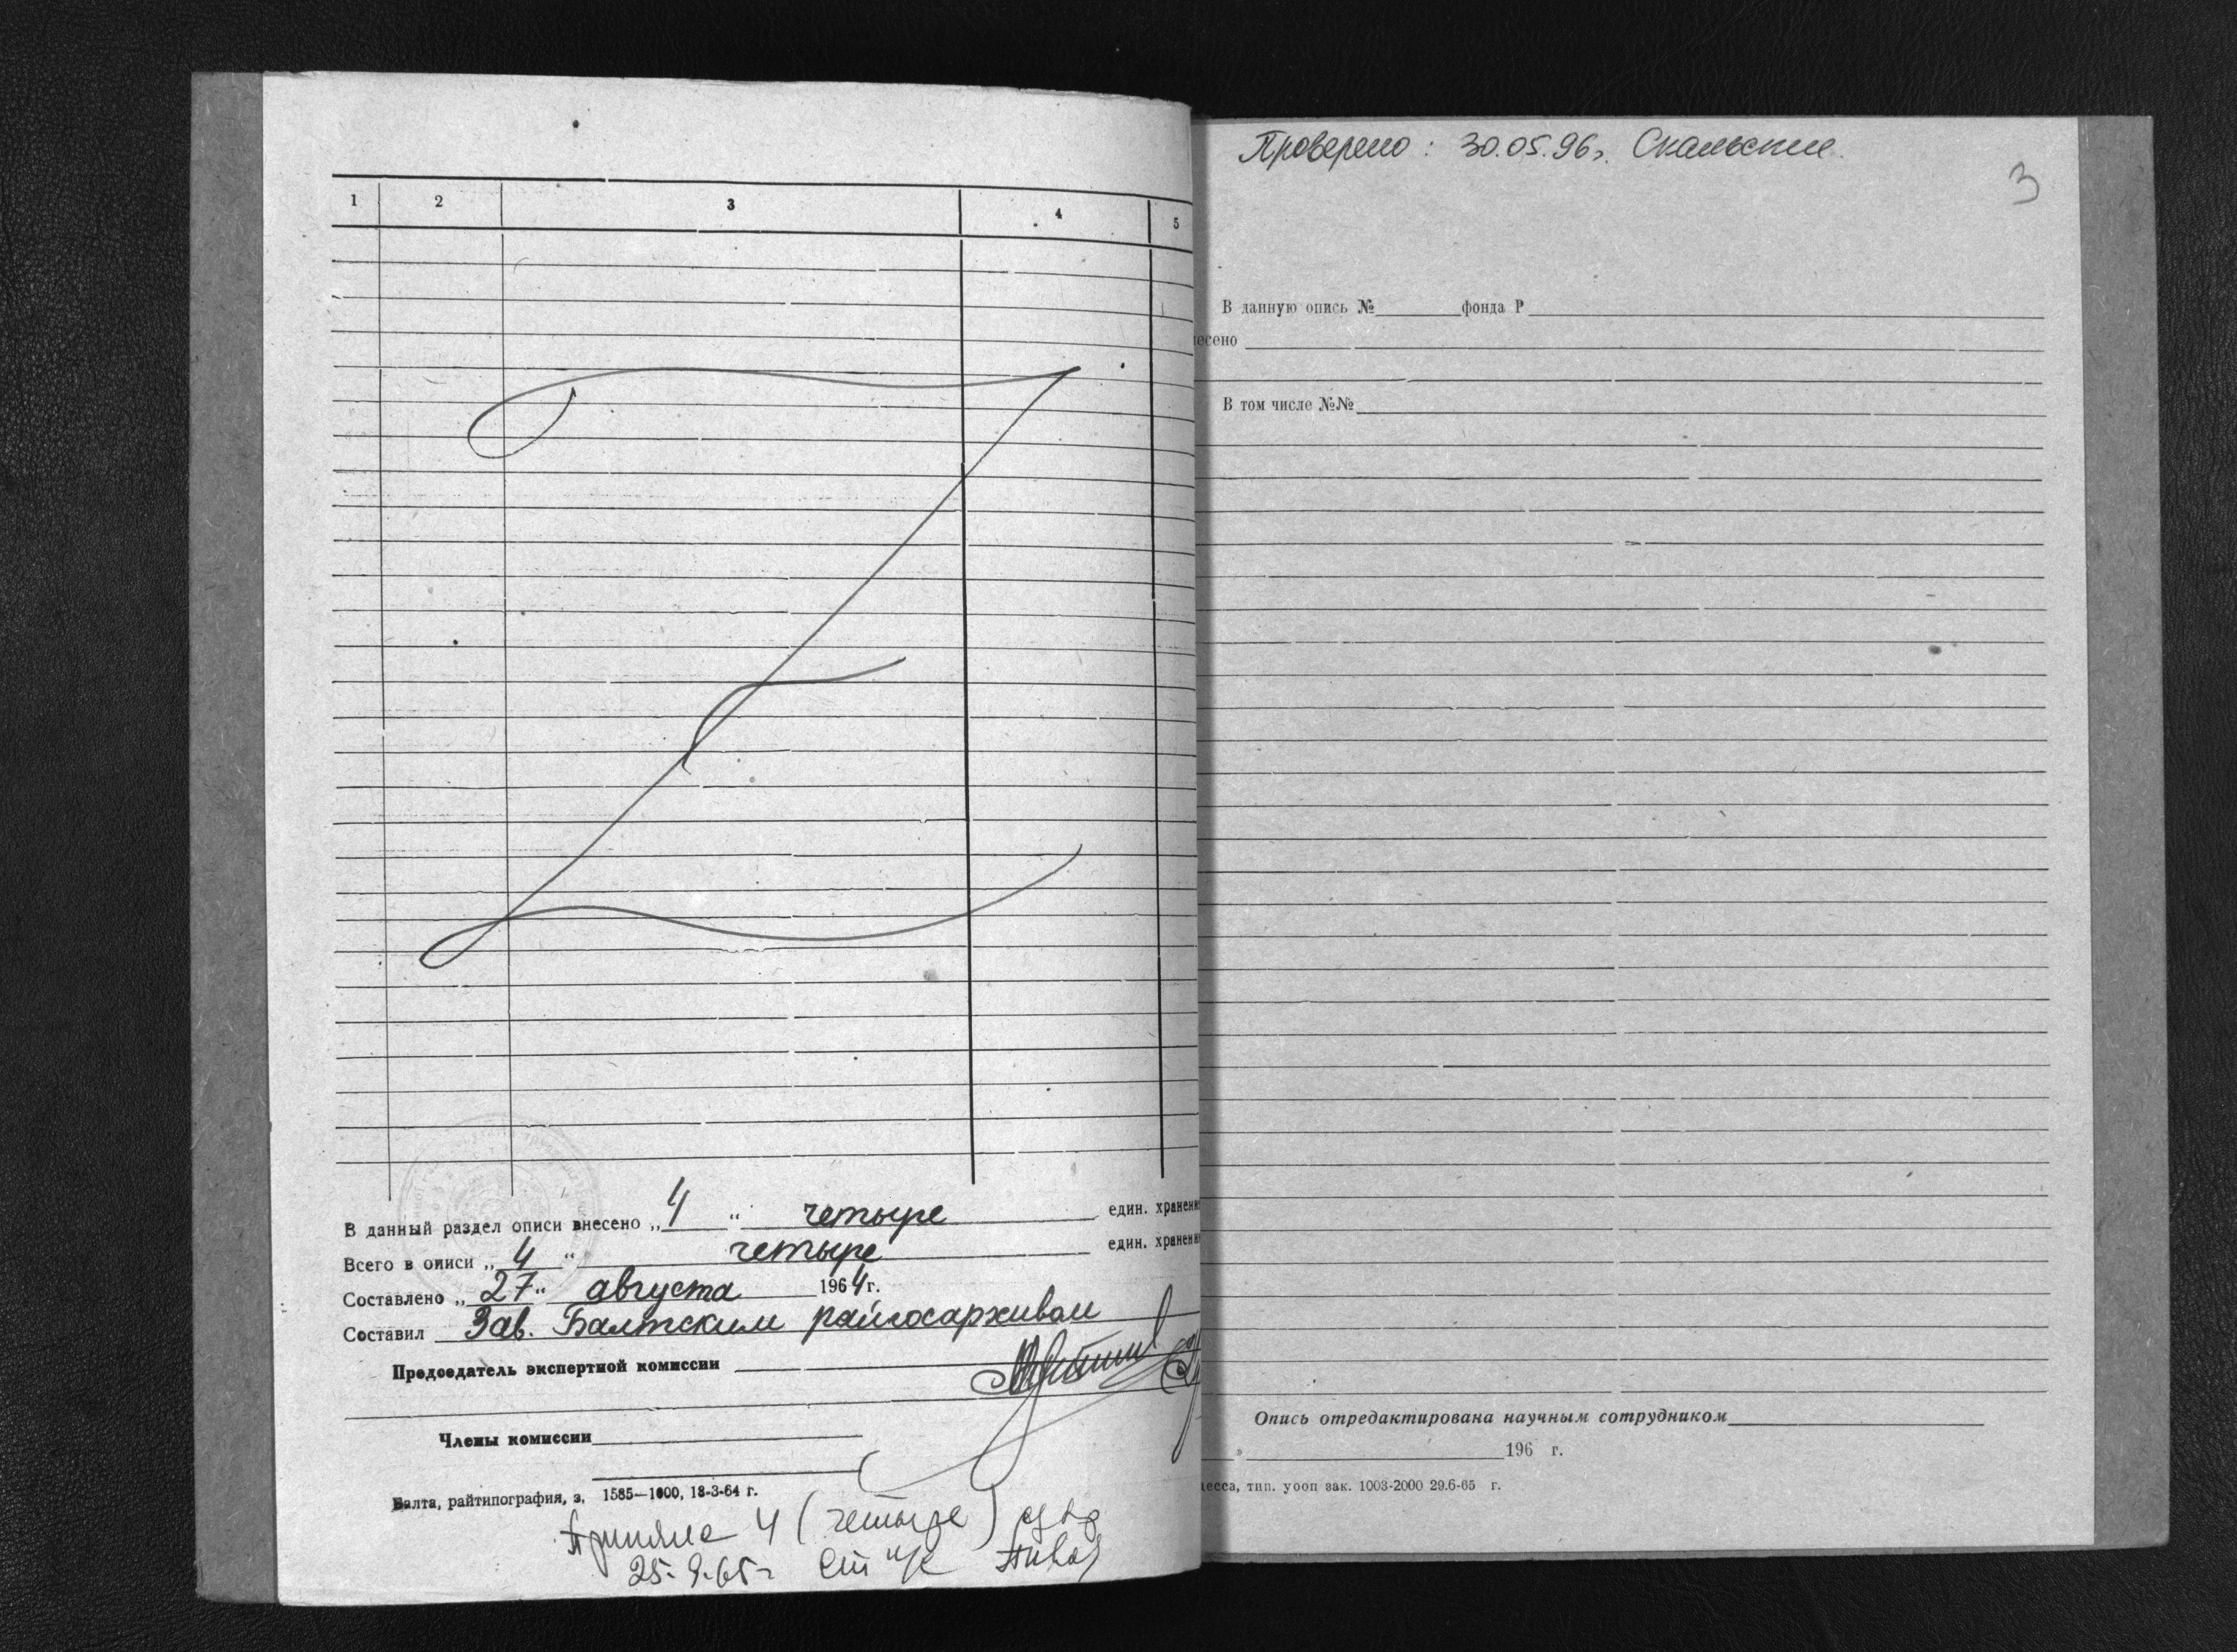 1 2 3 4 5
В данный раздел описи внесено „4“ четыре един. хранени
Всего в описи „4“ четыре един. хранени
Составлено „27“ августа 1964 г.
Составил Зав. Балтским райгосархивом
Председатель экспертной комиссии
Члены комиссии
Балта, райтипография, з. 1585—1000, 18-3-64 г.
Приняла 4 (четыре)
25.9.65 г.
Проверено: 30.05.96г.
3
В данную опись № фонда Р
несено
В том числе №№
Опись отредактирована научным сотрудником
» 196 г.
десса, тип. уооп зак. 1003-2000 29.6-65 г.